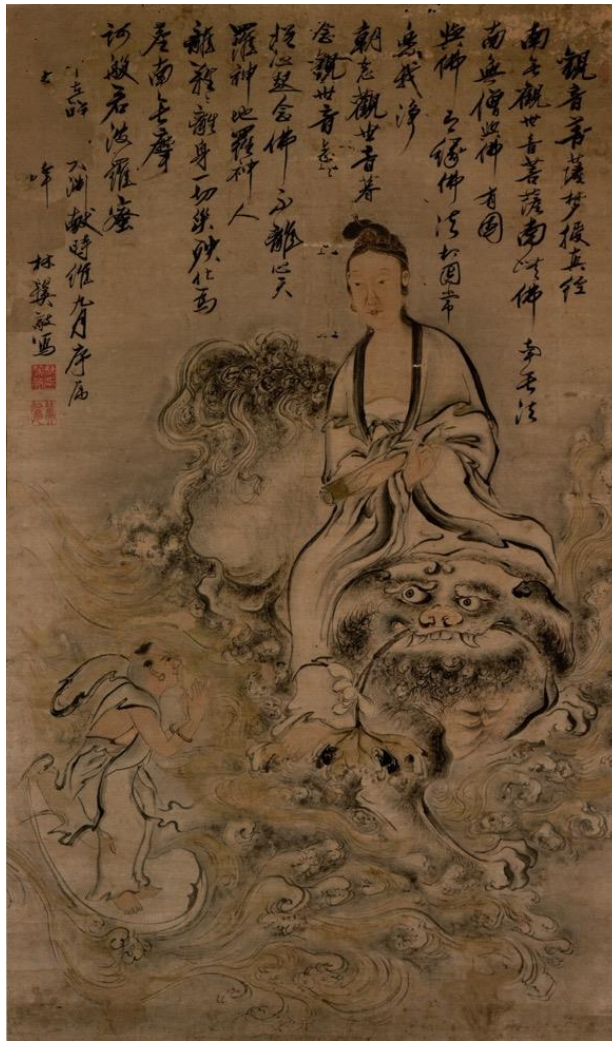 觀音菩薩夢授真經
南无觀世音菩薩南无佛 南无法
南無僧與佛有因
與佛有緣佛法相因常
樂我淨
朝念觀世音暮
念觀世音念々
從心起念佛不離心天
羅神地羅神人
離難々離身一切災殃化為
塵南无摩
訶般若波羅蜜
大
淵獻時維九月序屬
林
敬寫